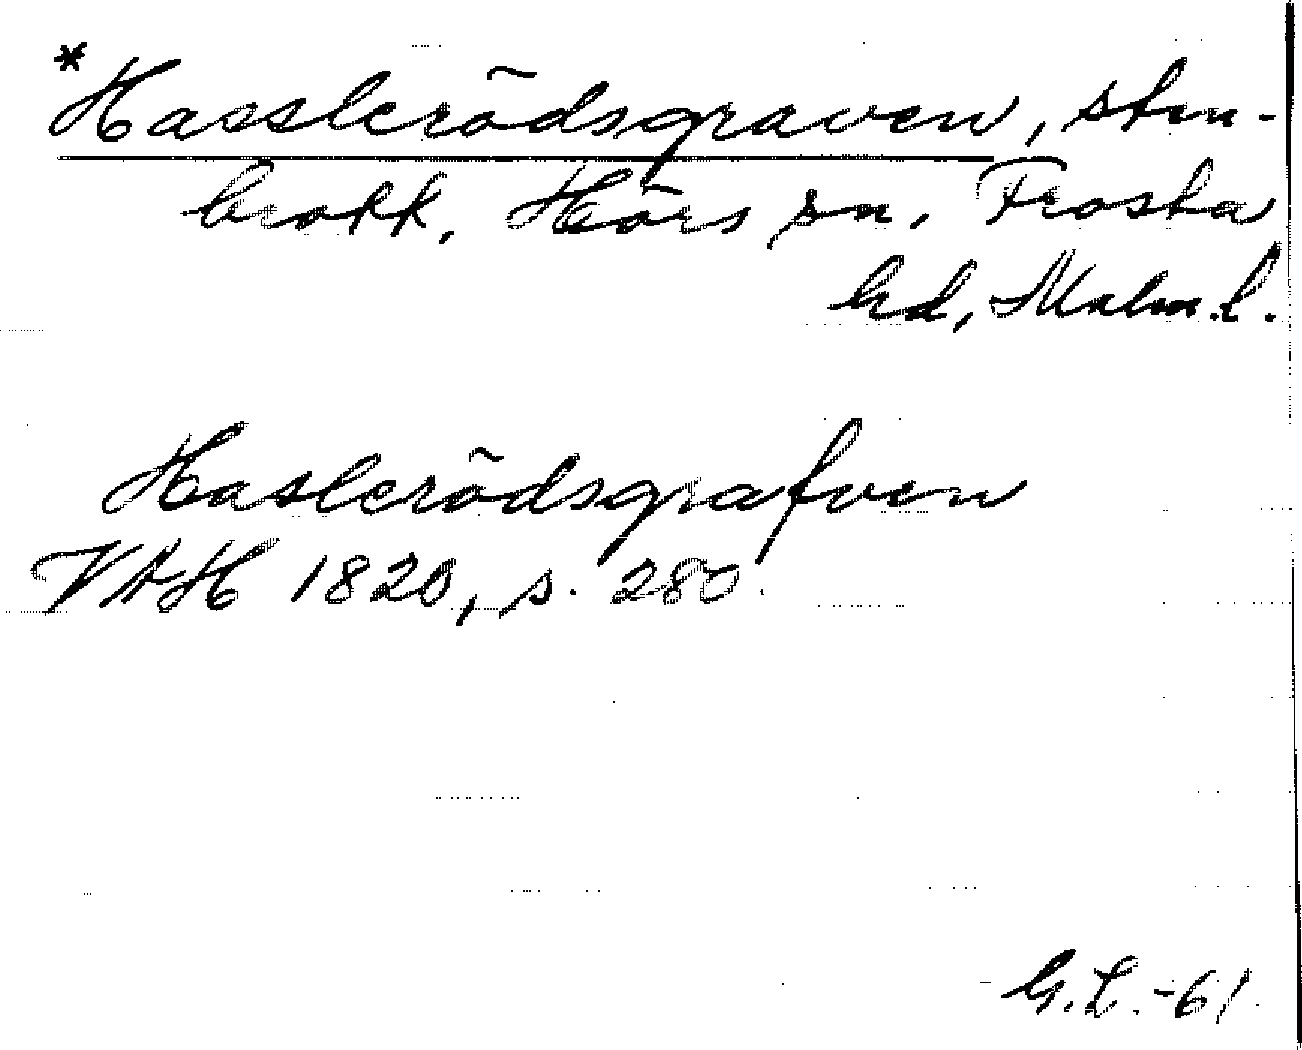 *Hasslerödsgraven, sten-
brott, Hörs sn, Frosta
hd, Malm.l.
Haslerödsgrafven
VAH 1820, s. 280.
G.L.-61